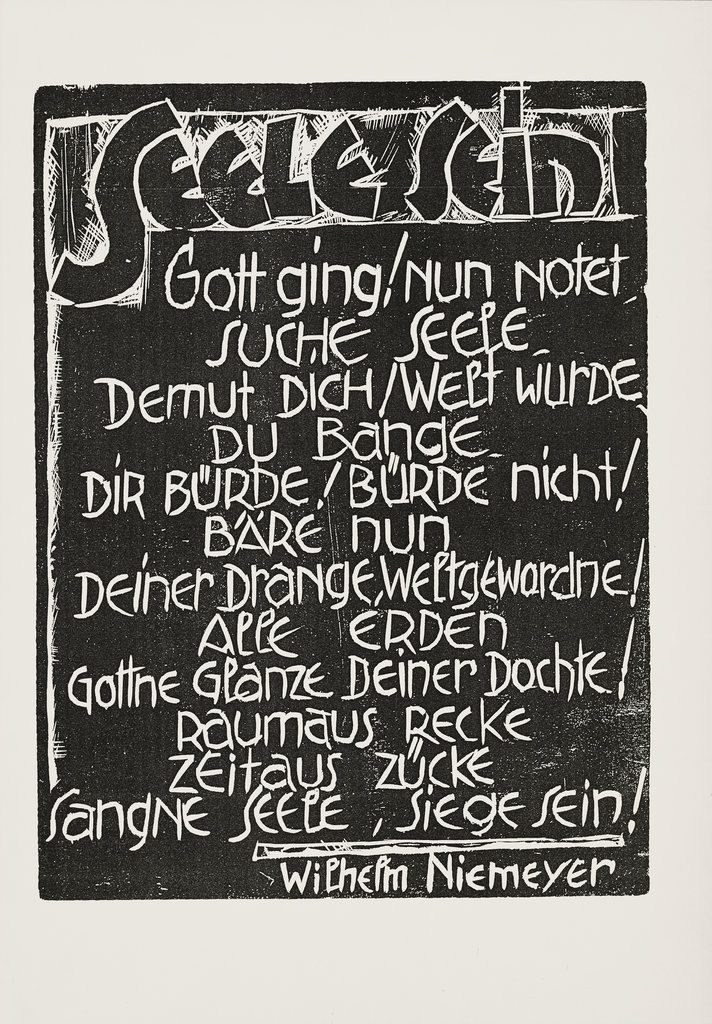 Seele sein
Gott ging! nun notet
suche Seele
Demut Dich! Welt würde
Du Bange
Dir Bürde! Bürde nicht!
Bäre nun
Deiner Drange, Weltgewordne!
Alle Erden
Gottne Glänze Deiner Dochte!
Raumaus recke
Zeitaus zücke
Sangne Seele, Siege sein!
Wilhelm Niemeyer